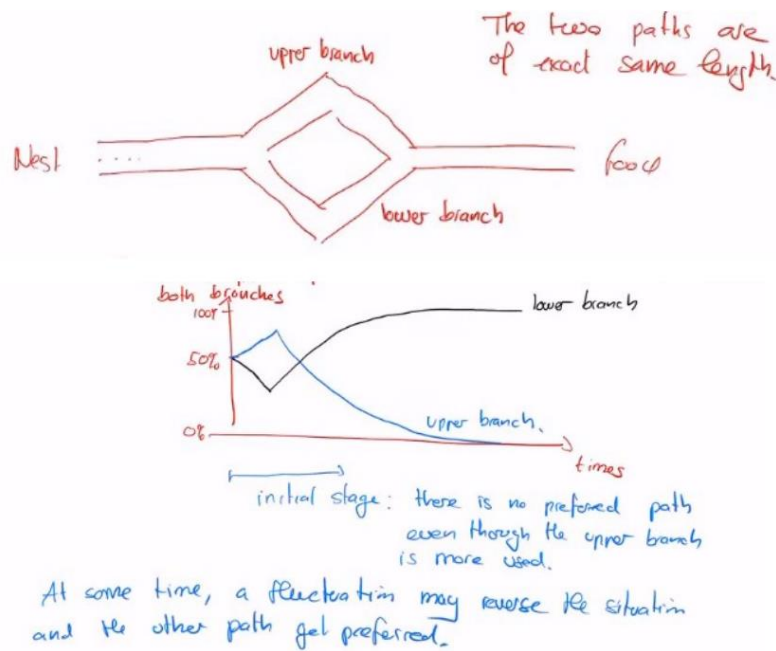 The two paths are
of exact same length.
upper branch
Nest
....
Food
lower branch
both branches
100%
50%
0%
lower branch
upper branch.
times
initial stage: there is no preferred path
even though the upper branch
is more used.
At some time, a fluctuation may reverse the situation
and the other path get preferred.